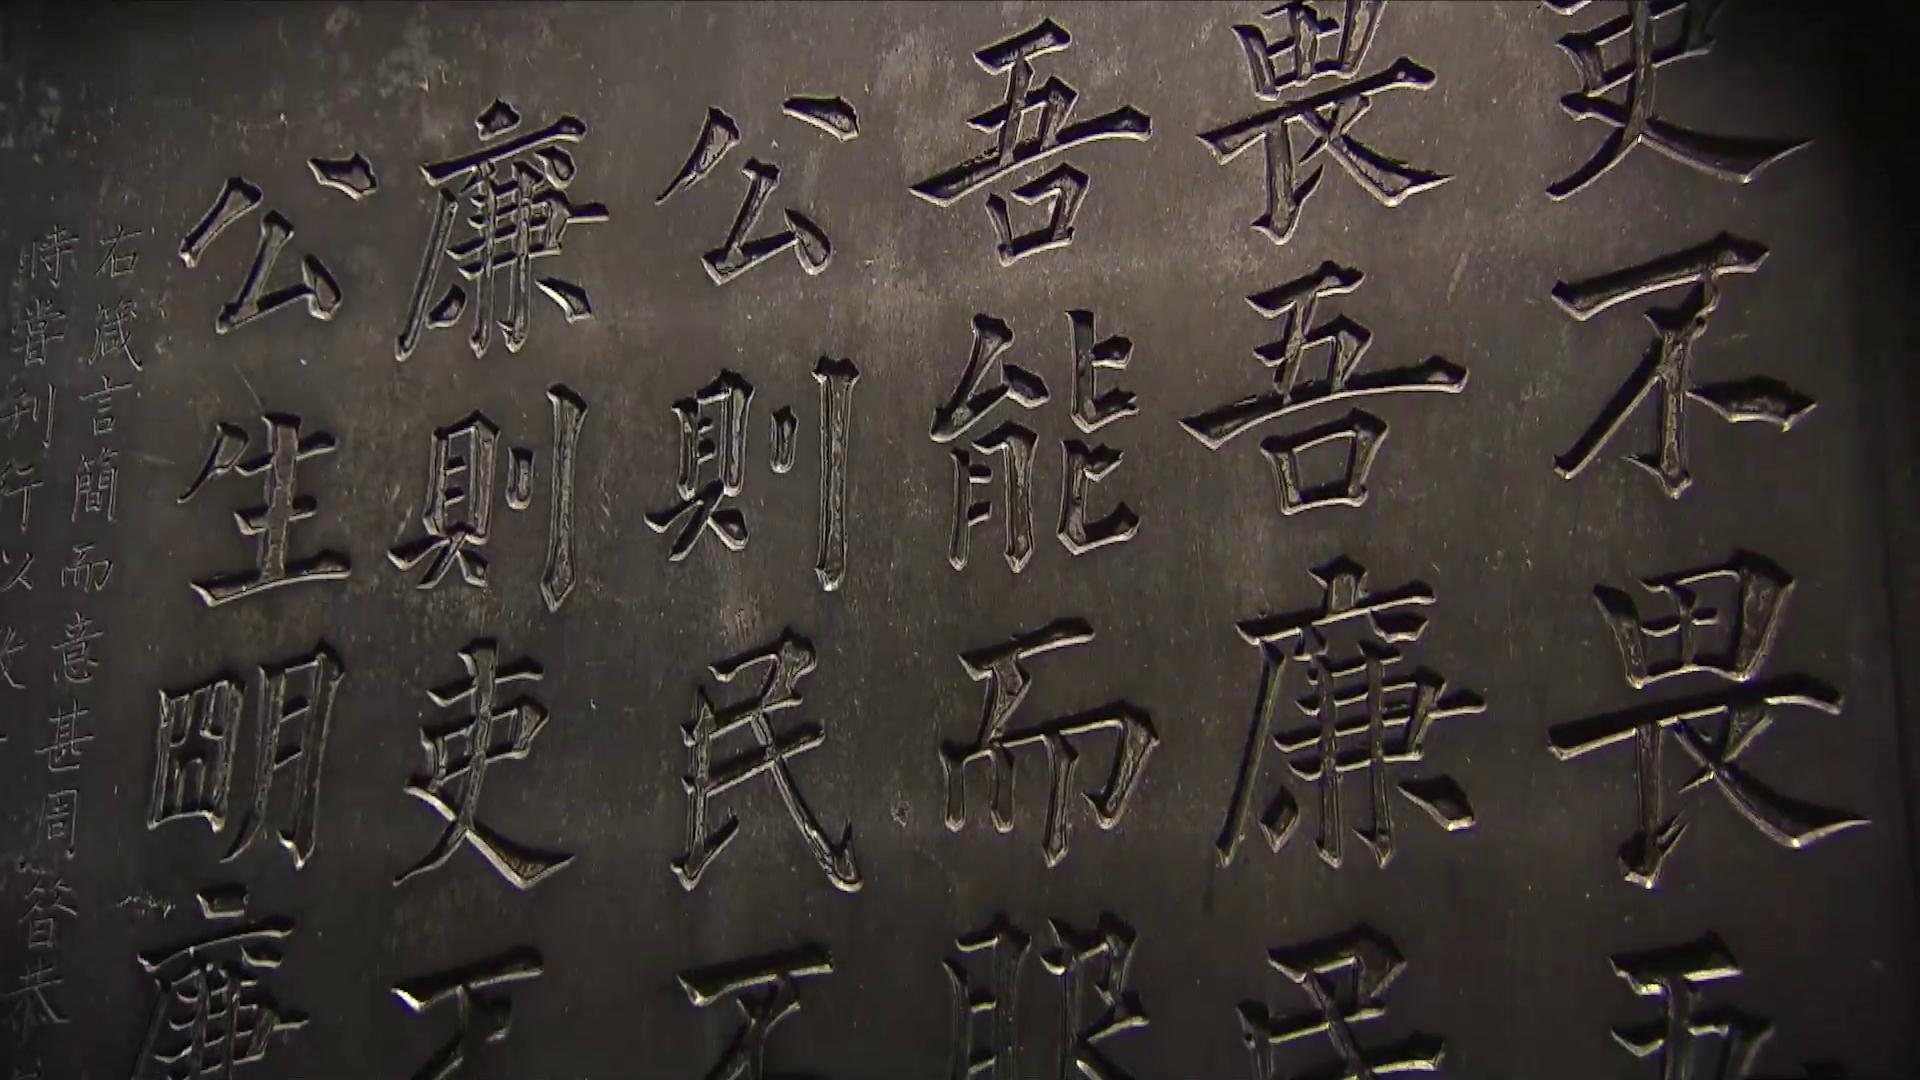 吏不畏吾
畏吾廉民
吾能而服
公則民不
廉則吏不
公生明廉
右箴言簡而意甚周恭
時嘗刋行以